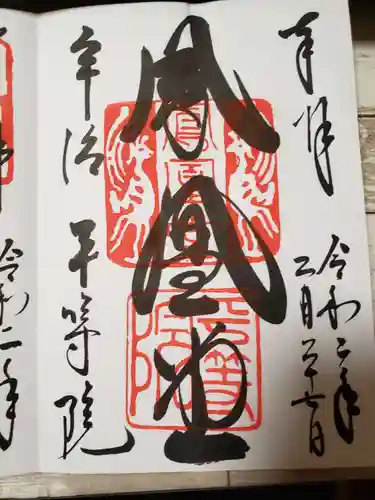 奉拝
令和二年
二月二十七日
鳳凰堂
宇治 平等院
令和二年